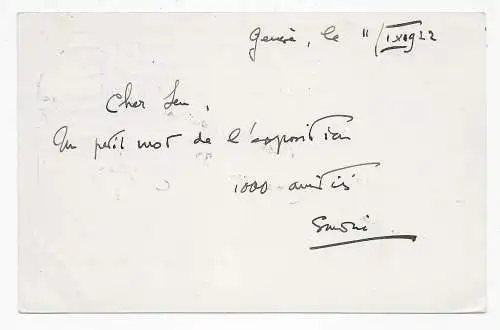 Genève, le 11/IX 1922
Cher
Un petit mot de l'exposition
1000 amitiés